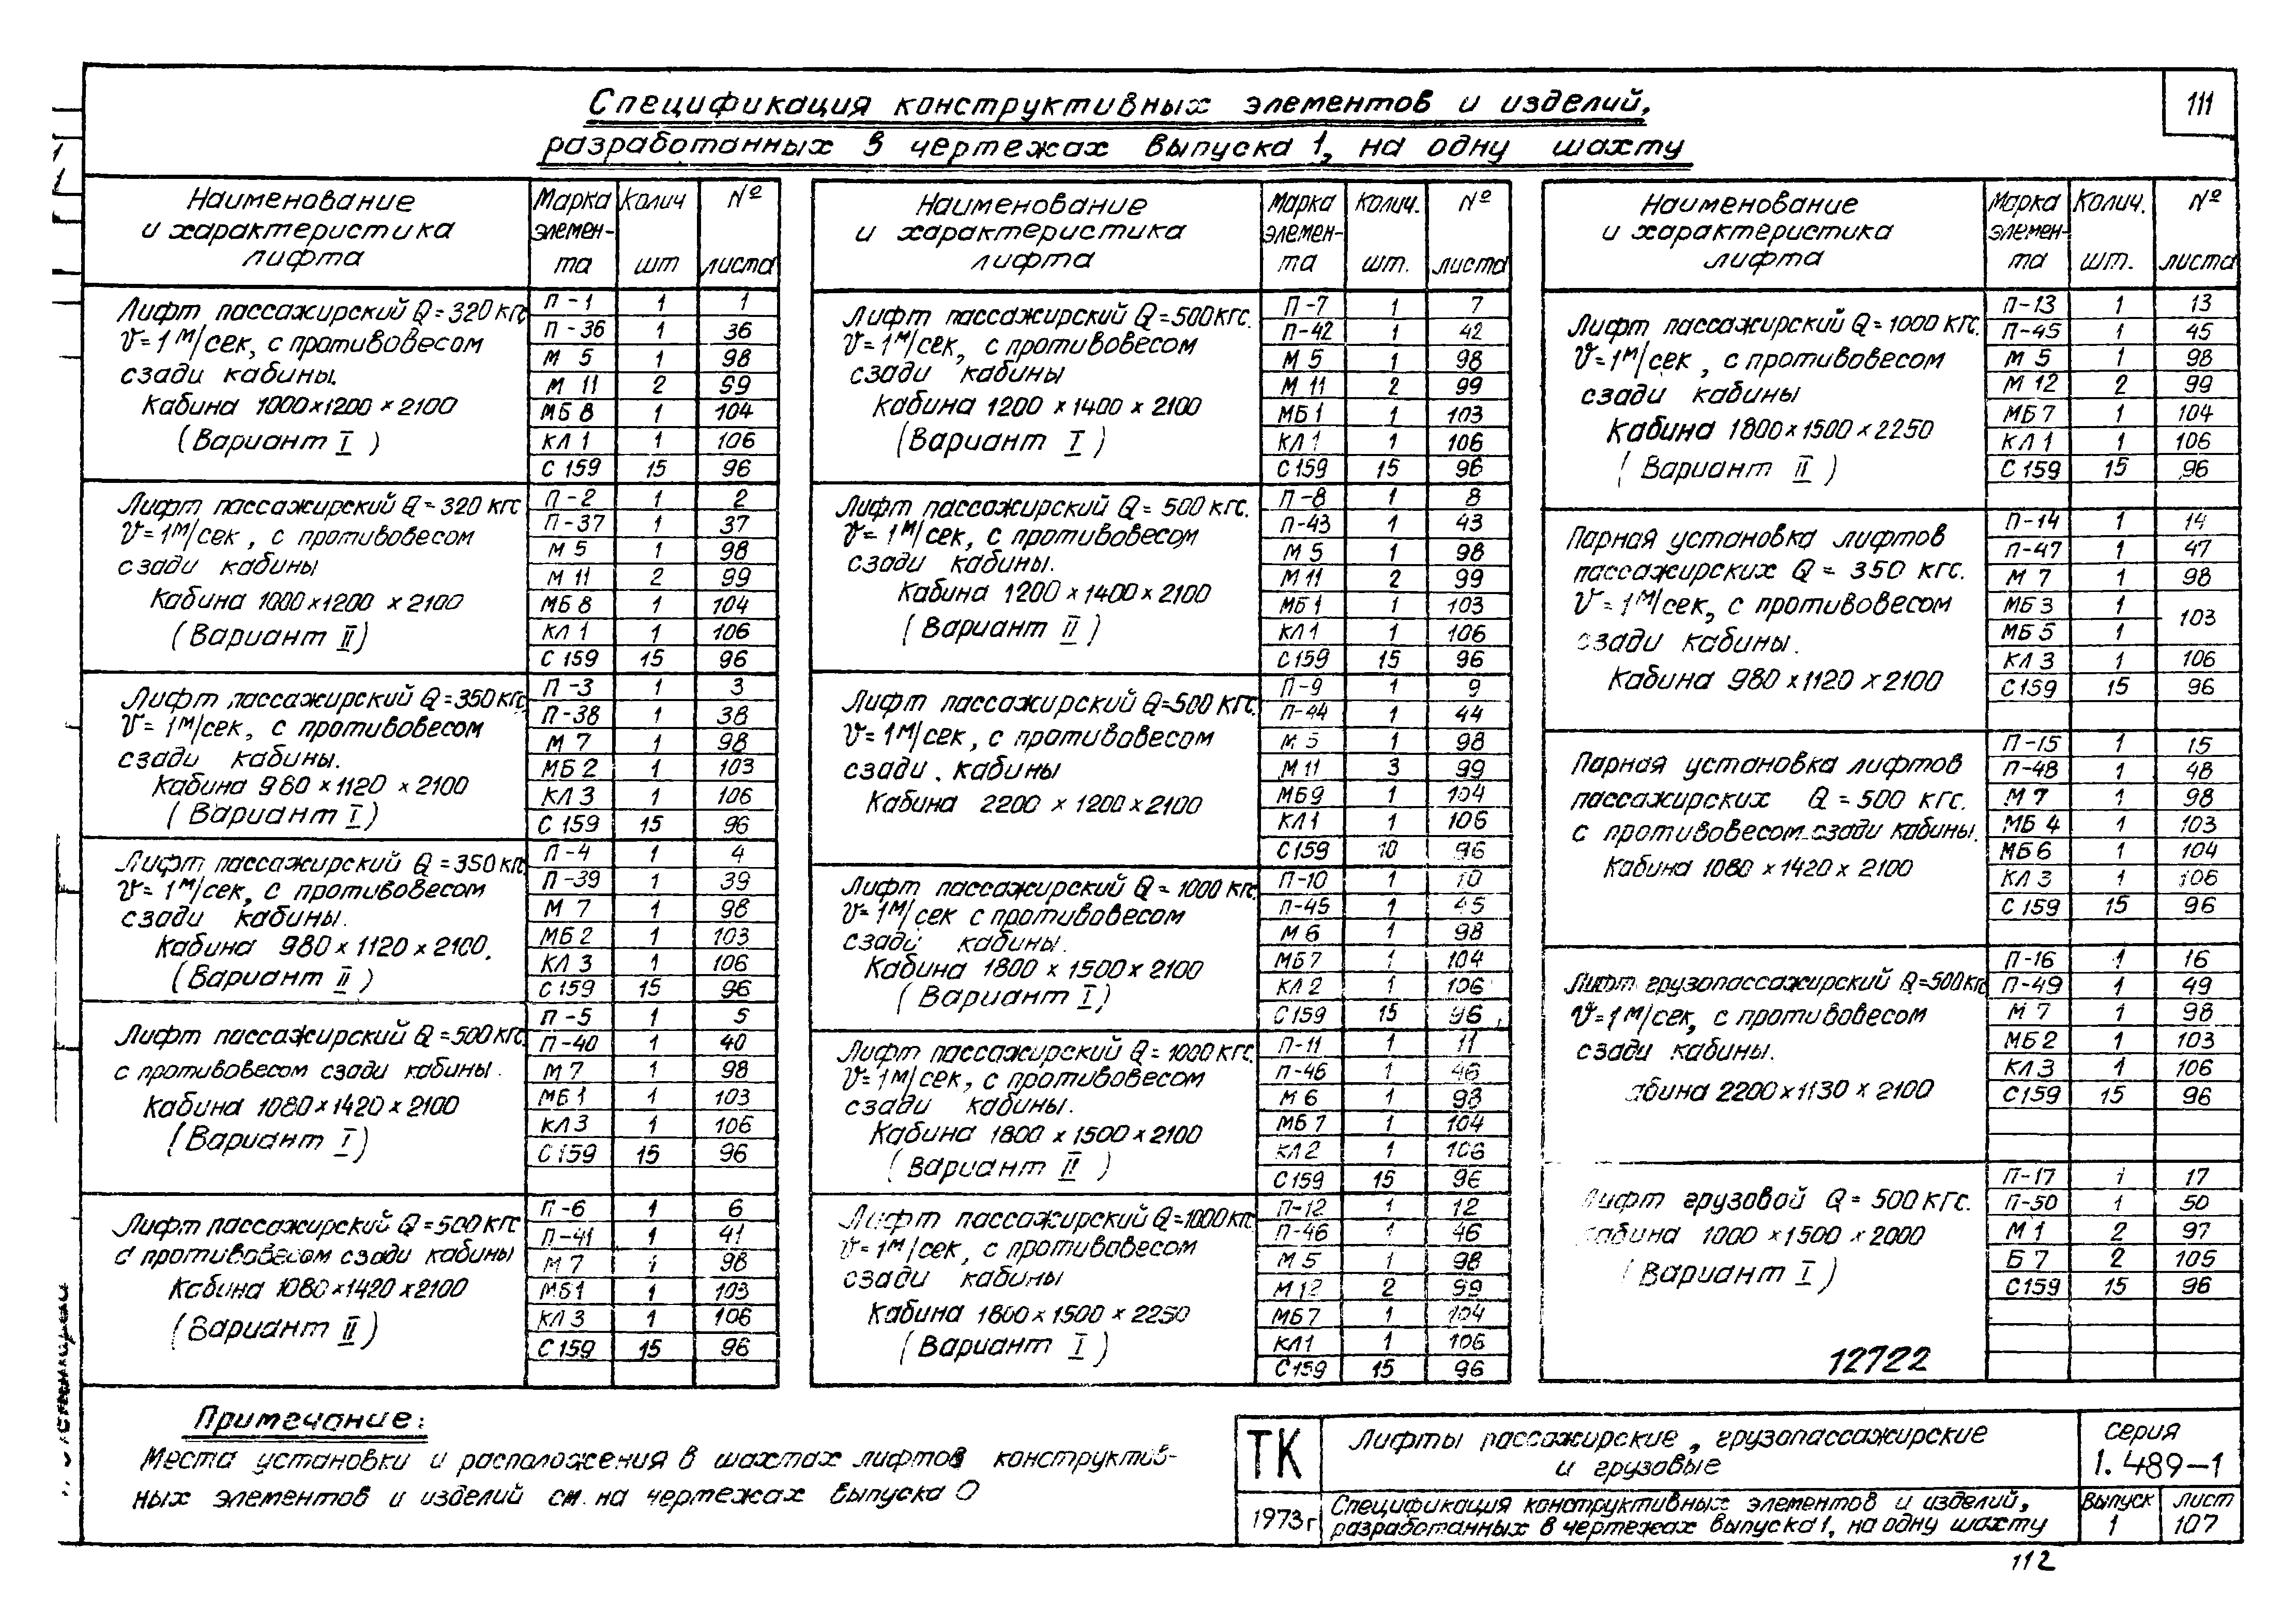 111
Спецификация конструктивных элементов и изделий,
разработанных в чертежах выпуска 1, на одну шахту
Наименование и характеристика лифта | Марка элемен-та | Колич шт | № листа
Лифт пассажирский Q=320 кгс
v=1м/сек, с противовесом
сзади кабины.
Кабина 1000×1200×2100
(Вариант I)
П-1 1 1
П-36 1 36
М 5 1 98
М 11 2 99
МБ 8 1 104
КЛ 1 1 106
С 159 15 96
Лифт пассажирский Q=320 кгс
v=1м/сек, с противовесом
сзади кабины
Кабина 1000×1200×2100
(Вариант II)
П-2 1 2
П-37 1 37
М 5 1 98
М 11 2 99
МБ 8 1 104
КЛ 1 1 106
С 159 15 96
Лифт пассажирский Q=350 кгс
v=1м/сек, с противовесом
сзади кабины.
Кабина 980×1120×2100
(Вариант I)
П-3 1 3
П-38 1 38
М 7 1 98
МБ 2 1 103
КЛ 3 1 106
С 159 15 96
Лифт пассажирский Q=350 кгс
v=1м/сек, с противовесом
сзади кабины.
Кабина 980×1120×2100.
(Вариант II)
П-4 1 4
П-39 1 39
М 7 1 98
МБ 2 1 103
КЛ 3 1 106
С 159 15 96
Лифт пассажирский Q=500 кгс.
с противовесом сзади кабины.
Кабина 1080×1420×2100
(Вариант I)
П-5 1 5
П-40 1 40
М 7 1 98
МБ 1 1 103
КЛ 3 1 106
С 159 15 96
Лифт пассажирский Q=500 кгс
с противовесом сзади кабины
Кабина 1080×1420×2100
(Вариант II)
П-6 1 6
П-41 1 41
М 7 1 98
МБ1 1 103
КЛ 3 1 106
С 159 15 96
Наименование и характеристика лифта | Марка элемен-та | Колич. шт. | № листа
Лифт пассажирский Q=500 кгс.
v=1м/сек, с противовесом
сзади кабины
Кабина 1200×1400×2100
(Вариант I)
П-7 1 7
П-42 1 42
М 5 1 98
М 11 2 99
МБ 1 1 103
КЛ 1 1 106
С159 15 96
Лифт пассажирский Q=500 кгс.
v=1м/сек, с противовесом
сзади кабины.
Кабина 1200×1400×2100
(Вариант II)
П-8 1 8
П-43 1 43
М 5 1 98
М 11 2 99
МБ 1 1 103
КЛ1 1 106
С159 15 96
Лифт пассажирский Q=500 кгс.
v=1м/сек, с противовесом
сзади кабины
Кабина 2200×1200×2100
П-9 1 9
П-44 1 44
М 5 1 98
М 11 3 99
МБ9 1 104
КЛ1 1 106
С159 10 96
Лифт пассажирский Q=1000 кгс.
v=1м/сек с противовесом
сзади кабины.
Кабина 1800×1500×2100
(Вариант I)
П-10 1 10
П-45 1 45
М 6 1 98
МБ7 1 104
КЛ 2 1 106
С159 15 96
Лифт пассажирский Q=1000 кгс.
v=1м/сек, с противовесом
сзади кабины.
Кабина 1800×1500×2100
(Вариант II)
П-11 1 11
П-46 1 46
М 6 1 98
МБ 7 1 104
КЛ2 1 106
С159 15 96
Лифт пассажирский Q=1000 кгс
v=1м/сек, с противовесом
сзади кабины
Кабина 1800×1500×2250
(Вариант I)
П-12 1 12
П-46 1 46
М 5 1 98
М 12 2 99
МБ7 1 104
КЛ1 1 106
С159 15 96
Наименование и характеристика лифта | Марка элемен-та | Колич. шт. | № листа
Лифт пассажирский Q=1000 кгс.
v=1м/сек, с противовесом
сзади кабины
Кабина 1800×1500×2250
(Вариант II)
П-13 1 13
П-45 1 45
М 5 1 98
М 12 2 99
МБ 7 1 104
КЛ 1 1 106
С 159 15 96
Парная установка лифтов
пассажирских Q=350 кгс.
v=1м/сек, с противовесом
сзади кабины.
Кабина 980×1120×2100
П-14 1 14
П-47 1 47
М 7 1 98
МБ 3 1 103
МБ 5 1
КЛ 3 1 106
С159 15 96
Парная установка лифтов
пассажирских Q=500 кгс.
с противовесом сзади кабины.
Кабина 1080×1420×2100
П-15 1 15
П-48 1 48
М 7 1 98
МБ 4 1 103
МБ6 1 104
КЛ 3 1 106
С 159 15 96
Лифт грузопассажирский Q=500кгс
v=1м/сек, с противовесом
сзади кабины.
абина 2200×1130×2100
П-16 1 16
П-49 1 49
М 7 1 98
МБ2 1 103
КЛ3 1 106
С159 15 96
Лифт грузовой Q=500 кгс.
Кабина 1000×1500×2000
(Вариант I)
П-17 1 17
П-50 1 50
М 1 2 97
Б 7 2 105
С159 15 96
12722
Примечание:
Места установки и расположения в шахтах лифтов конструктив-
ных элементов и изделий см. на чертежах выпуска 0
ТК
1973г
Лифты пассажирские, грузопассажирские
и грузовые
Спецификация конструктивных элементов и изделий,
разработанных в чертежах выпуска 1, на одну шахту
серия
1.489-1
Выпуск
1
лист
107
112